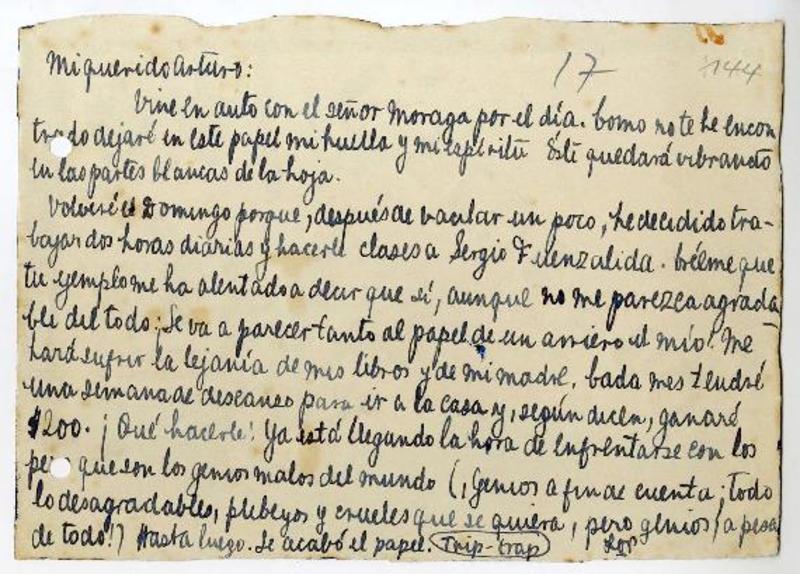 Mi querido Arturo:
17
144
Vine en auto con el señor Moraga por el día. Como no te he encon
trado dejaré en este papel mi huella y mi espíritu Éste quedará vibrando
en las partes blancas de la hoja.
Volveré el Domingo porque, después de vacilar un poco, he decidido tra-
bajar dos horas diarias y hacerle clases a Sergio Fuenzalida. Créeme que
tu ejemplo me ha alentado a decir que sí, aunque no me parezca agrada
ble del todo. ¡Se va a parecer tanto al papel de un arriero el mío! Me
hará sufrir la lejanía de mis libros y de mi madre. Cada mes tendré
una semana de descanso para ir a la casa y, según dicen, ganaré
$200. ¡Qué hacerle! Ya está llegando la hora de enfrentarse con los
que son los genios malos del mundo (¡Genios a fin de cuenta; todo
lo desagradables, plebeyos y crueles que se quiera, pero genios a pesar
de todo!) Hasta luego. Se acabó el papel. Trip-trap